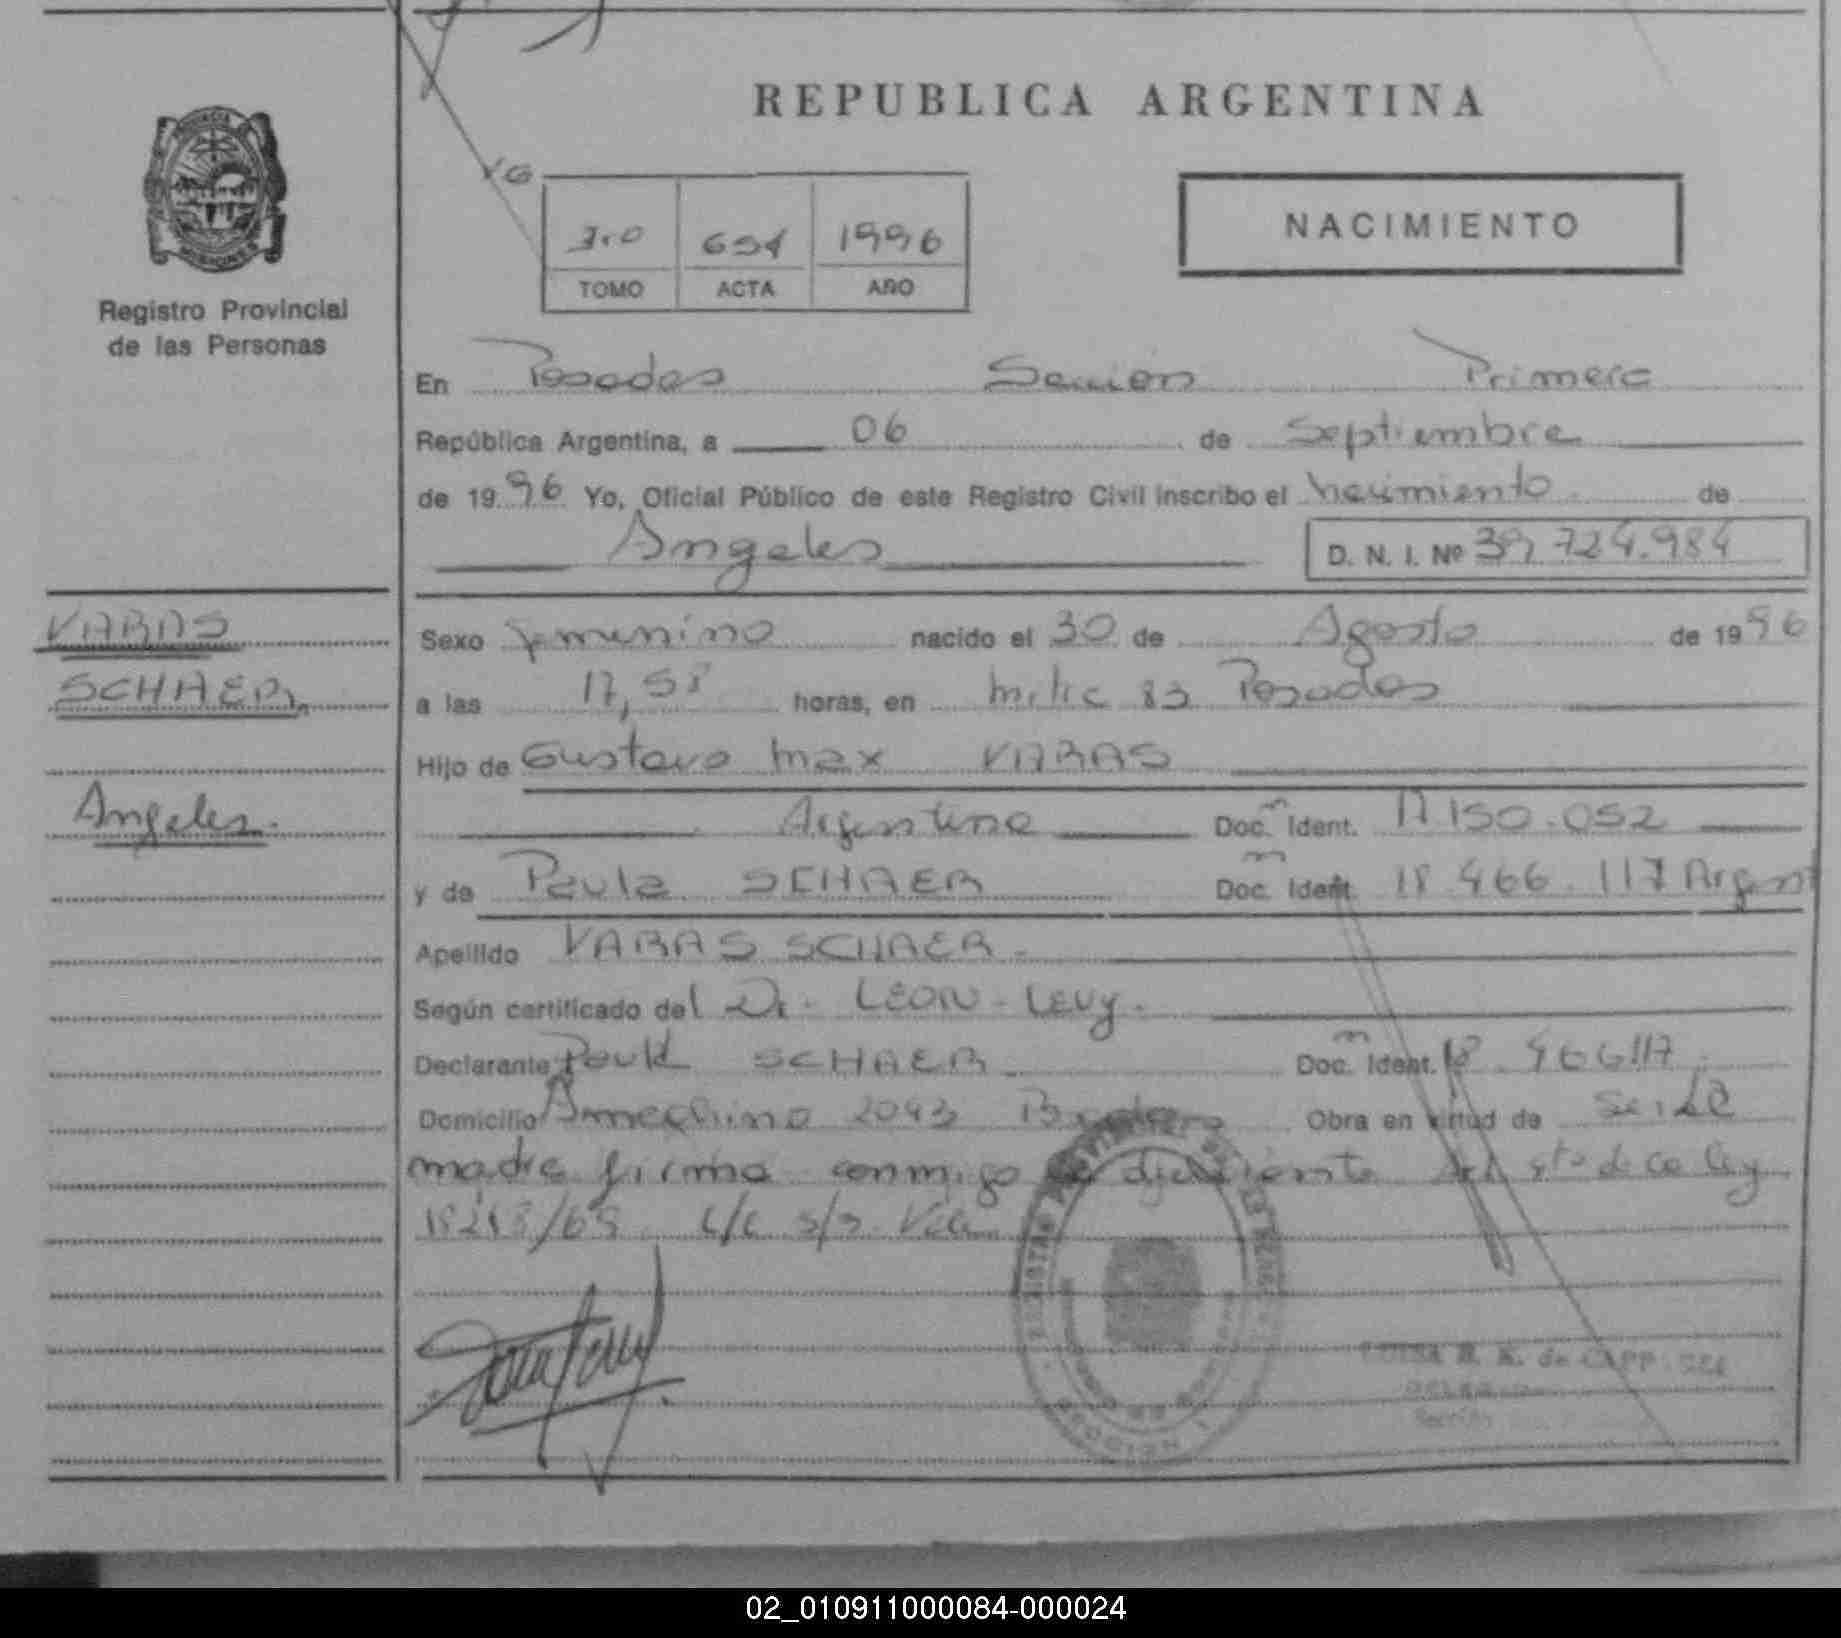 REPUBLICA ARGENTINA
PROVINCIA DE MISIONES
Registro Provincial
de las Personas
3ro 654 1996
TOMO ACTA AÑO
NACIMIENTO
En Posadas Sección Primera
República Argentina, a 06 de Septiembre
de 1996 Yo, Oficial Público de este Registro Civil inscribo el nacimiento de
Angeles D. N. I. Nº 39.724.984
VARAS
SCHAER
Angeles.
Sexo femenino nacido el 30 de Agosto de 1996
a las 17,58 horas, en 83 Posadas
Hijo de Gustavo Max VARAS
Argentino Doc. Ident. 17.150.052
y de Paula SCHAER Doc. Ident. 18.466.117 Argent
Apellido VARAS SCHAER.
Según certificado del Dr. LEON - Levy.
Declarante Paula SCHAER Doc. Ident. 18.466117.
Domicilio 2043 Obra en virtud de ser la
madre firma conmigo Art. de la ley
18248/69
LUISA R. K. de
Sección
02_010911000084-000024